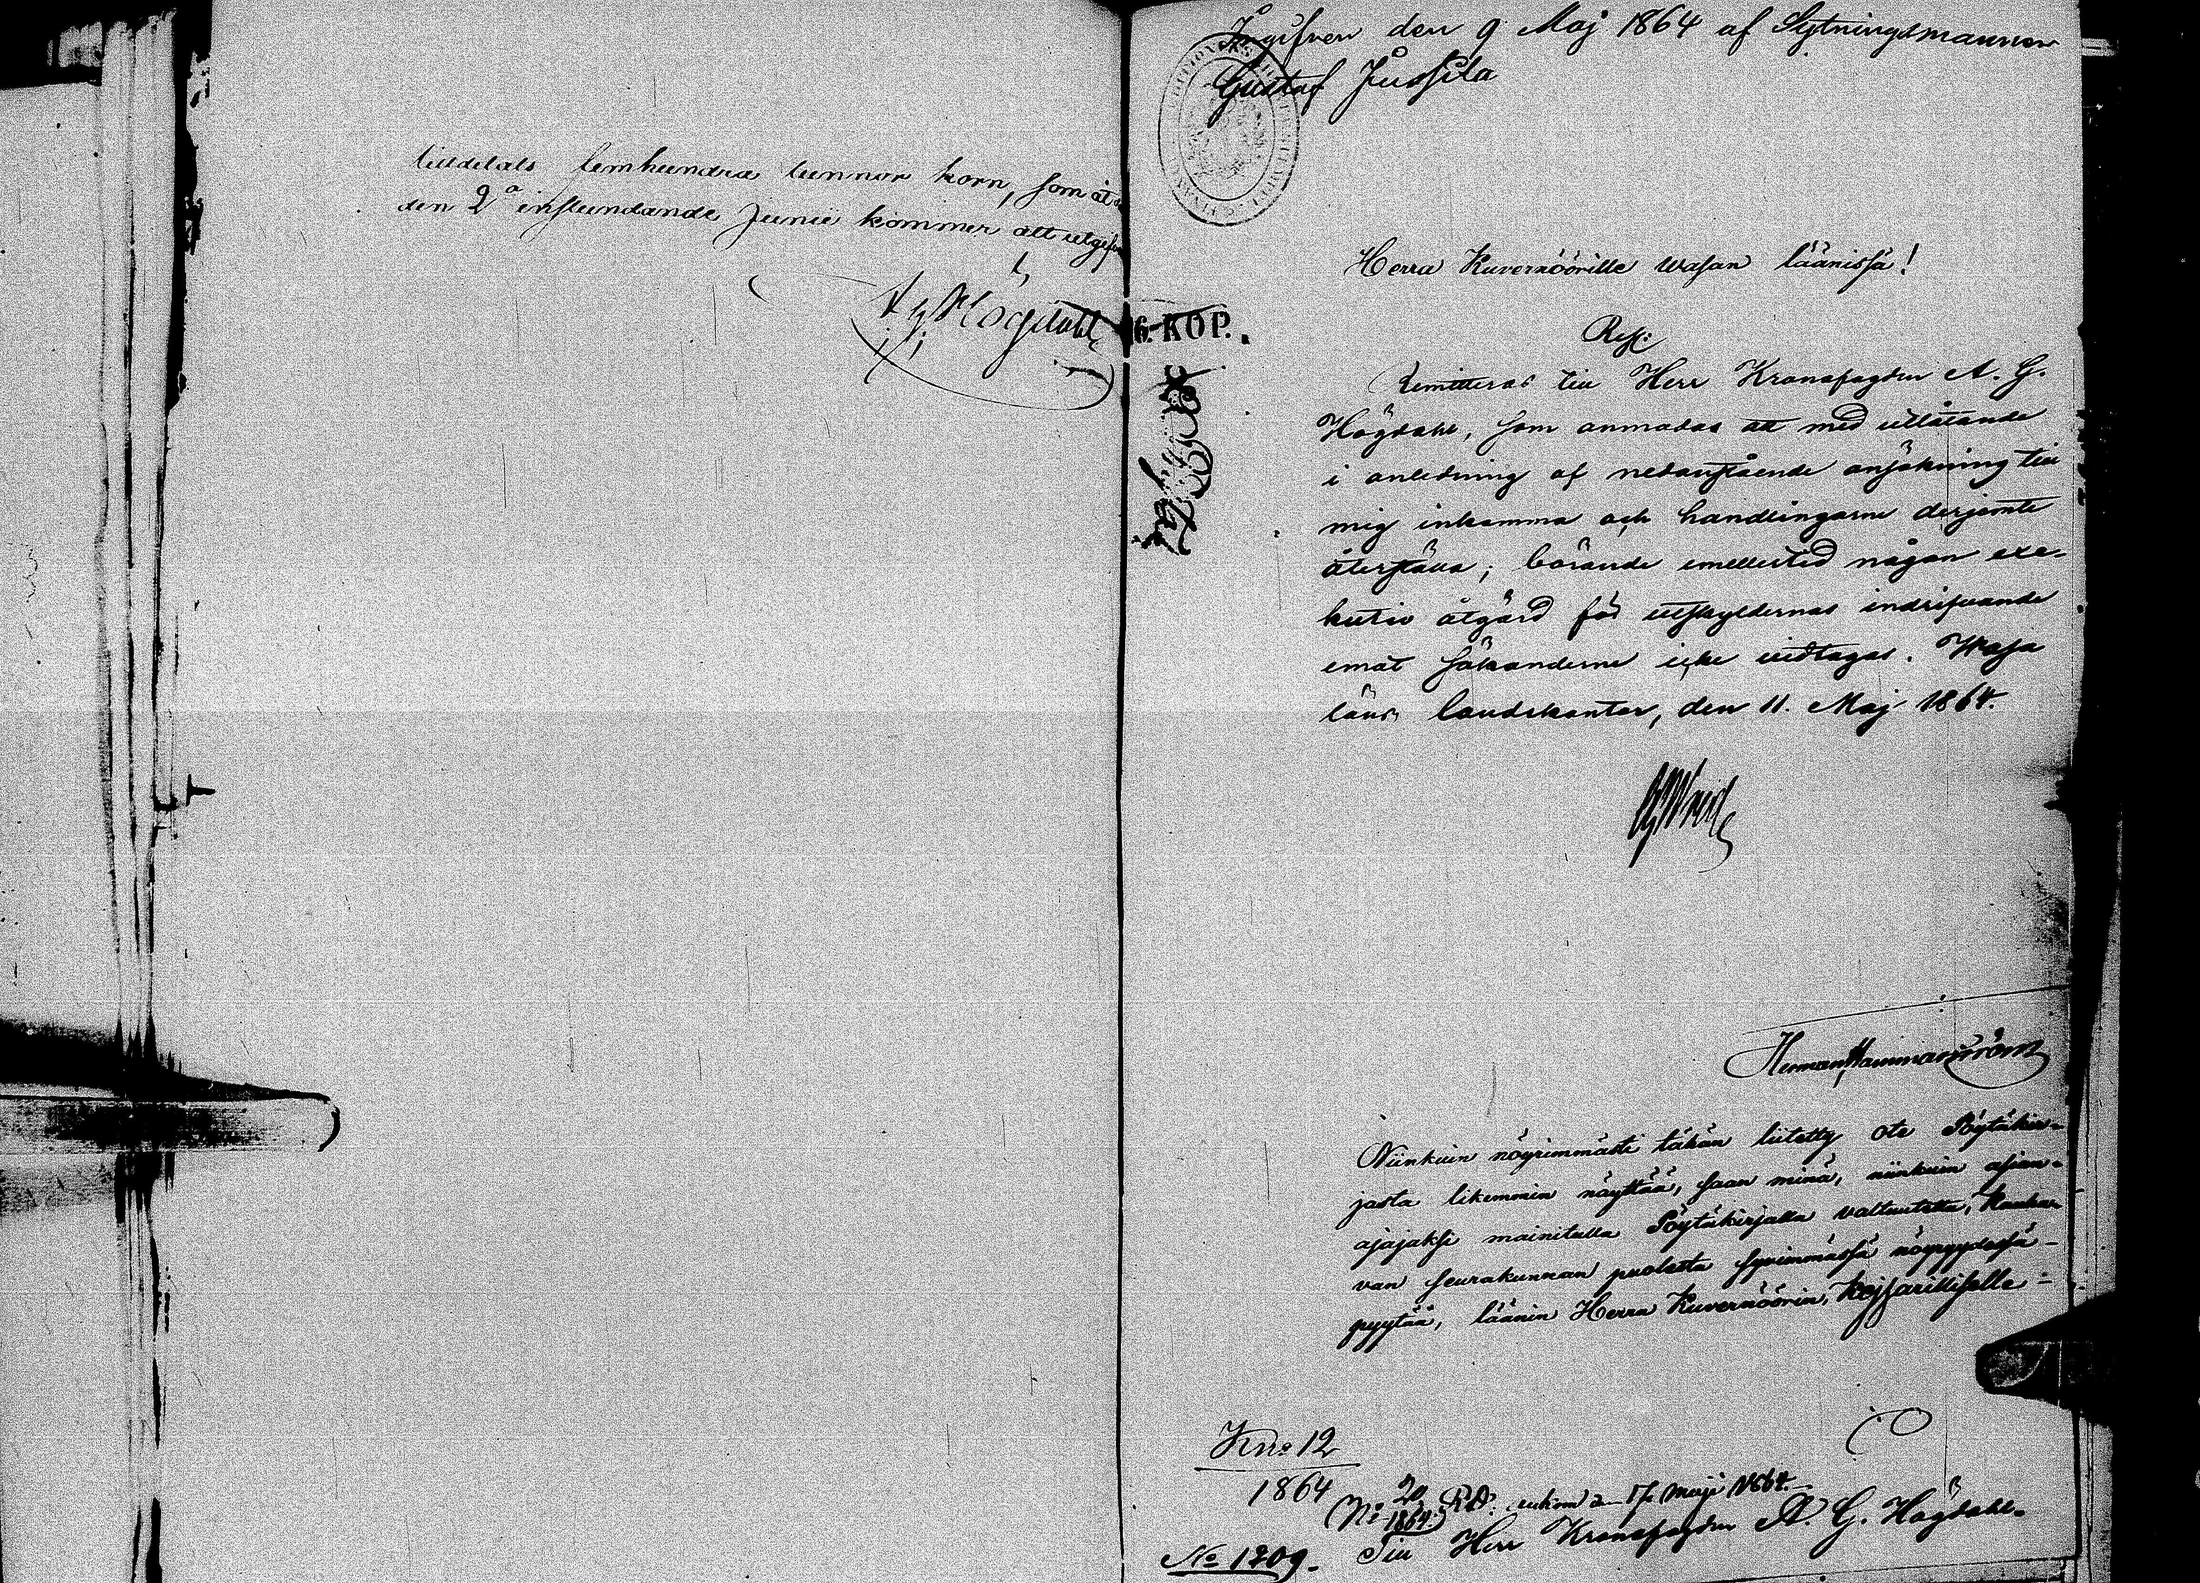 tilldelats femhundra tunnor korn, som åt
den 2a instundande Junii kommer att utgifva
A G Högdahl
Ingifven den 9 Maj 1864 af Sytningsmannen
Gustaf Jussila
6. KOP.
Herra Kuvernöörille Wasan läänissä!
Res:
Remitteras till Herr Kronofogden A. G.
Högdahl, som anmodas att med utlåtande
i anledning af nedanstående ansökning till
mig inkomma och handlingarne derjemte
återställa; börande emellertid någon exe-
kutiv åtgärd för utskyldernas indrifvande
emot sökanderne icke vidtagas. Wasa
läns landskontor, den 11. Maj 1864.
Herman Hammarström
Niinkuin nöyrimmästi tähän liitetty ote Pöytäkir-
jasta likemmin näyttää, saan minä, niinkuin asian-
ajajaksi mainitulla Pöytäkirjalla valtuutettu, Kauha-
van seurakunnan puolesta syvimmässä nöyryydessä
pyytää, läänin Herra Kuvernöörin, Keisarilliselle
K no 12
1864
No 20 1864. R.D. inkom den 17 Maji 1864.
Till Herr Kronofogden A. G. Högdahl.
No 1209.